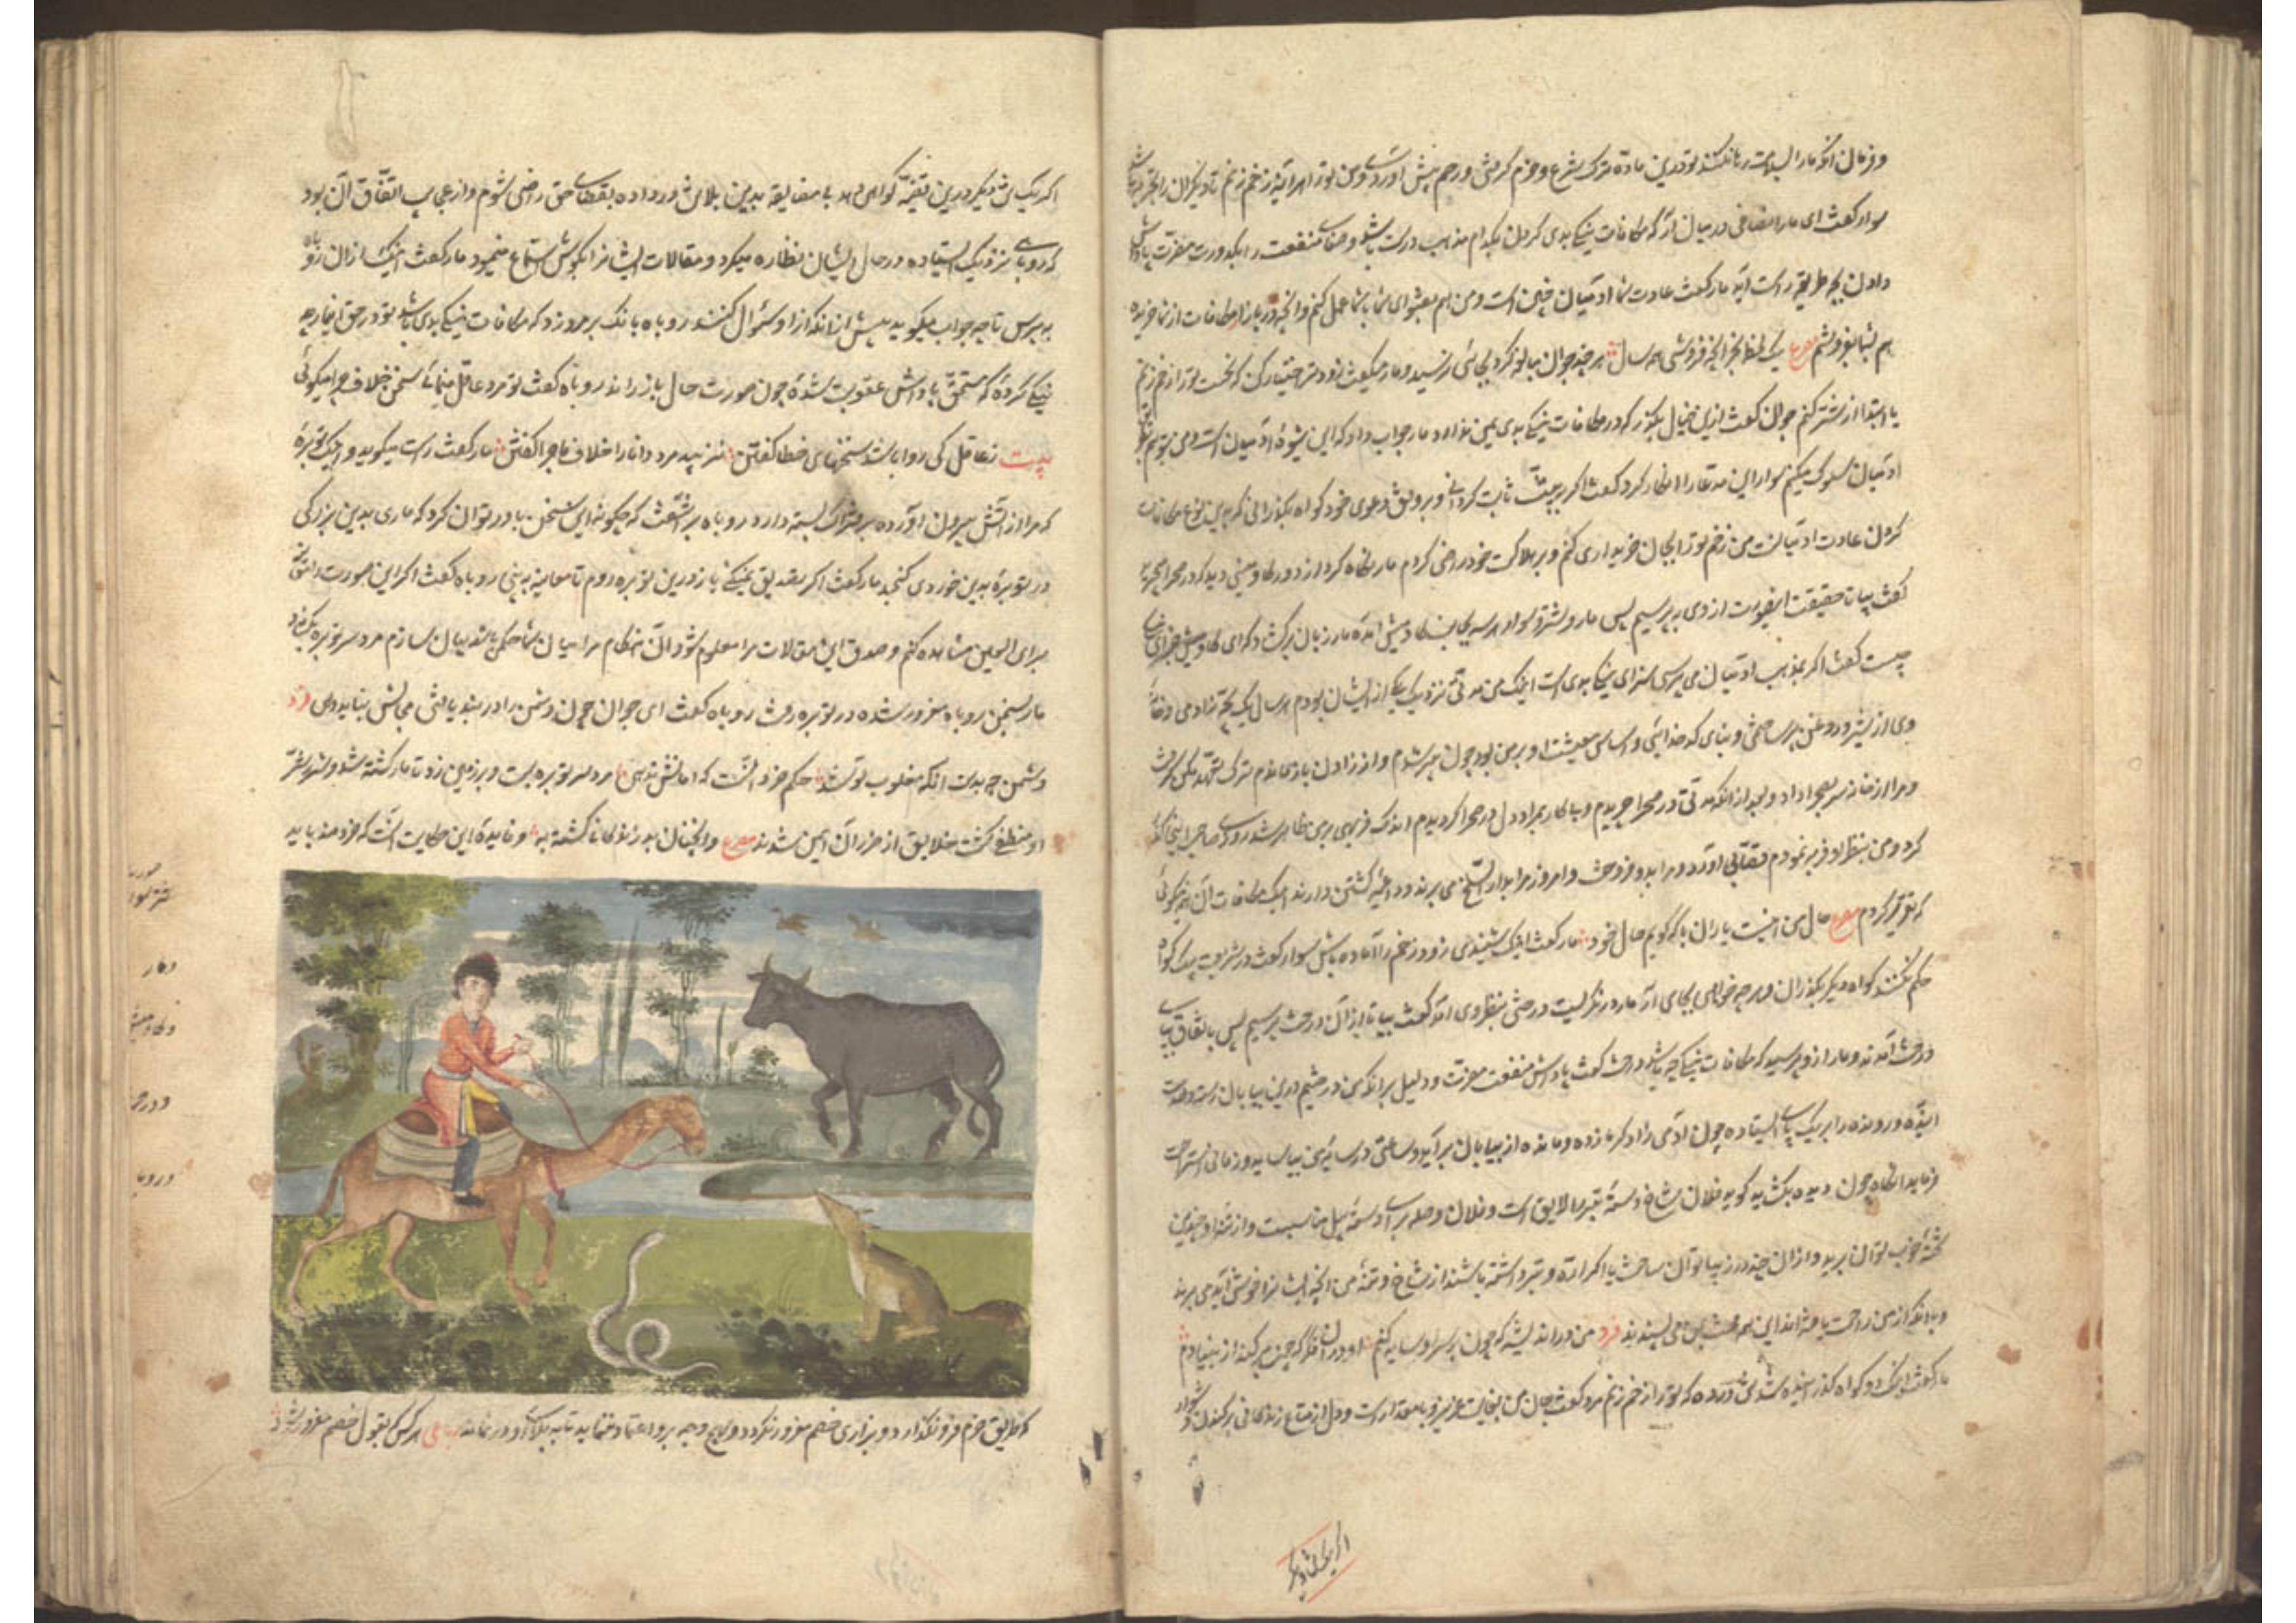 و فرمان آنکه ما را البته رنانکنند تو درین ماده ترک شرع و حزم گرفتی و رحم پیش آوردی و من تو را هر آینه زخم زنم تا دیگران را
سوار گفت ای مار انصاف در میان آر که مکافات نیکی بدی کردن بکدام مذهب درست باشد و صفای منفعت را بکدورت مضرت پاداش
دادن بچه طریقه راست آید مار گفت عادت شما آدمیان چنین است و من هم بفتوای شما با شما عمل کنم و آنچه در بازار مکافات از شما خریده
هم بشما بفروشم مصرع یک لحظه بخر آنچه فروشی همه سال هر چند جوان مبالغه کرد بجائی نرسید و مار میگفت زودتر اختیار کن که نخست ترا زخم زنم
یا ابتدا از شتر کنم جوان گفت ازین خیال بگذر که در مکافات نیکی بدی یمن ندارد مار جواب داد که این شیوه آدمیان است و من بتو هم بطریق
آدمیان سلوک میکنم سوار این مدعا را انکار کرد گفت اگر بحجت ثابت گردانی و بر وفق دعوی خود گواه بگذرانی که بدین نوع مکافات
کردن عادت آدمیانست من زخم ترا بجان خریداری کنم و بر هلاکت خود راضی گردم مار نگاه کرد از دور گاومیشی دید که در صحرا میچرید
گفت بیا تا حقیقت اینصورت از وی بپرسیم پس مار و شترسوار هر سه بجانب گاومیش آمده مار زبان برگشاد که ای گاومیش جزای نیکی
چیست گفت اگر بمذهب آدمیان می پرسی سزای نیکی بدی است اینک من مدتی نزدیک یکی از ایشان بودم هر سال یک بچه زادمی و خانه
وی از شیر و روغن پر ساختی و بنای کدخدائی و اساس معیشت او بر من بود چون پیر شدم و از زادن باز ماندم ترک تعهد من گرفت
و مرا از خانه سر بصحرا داد و بعد از آنکه مدتی در صحرا چریدم و بیکار بمراد دل در صحرا گردیدم اندک فربهی بر من ظاهر شد روزی صاحب من اینجا گذر
کرد و من بنظر او فربه نمودم قصابی آورد و مرا بدو فروخت و امروز مرا بدار السلخ می برند و داعیه کشتن دارند اینک مکافات آن همه نیکوئی
که تقریر کردم مصرع حال من اینست یاران با که گویم حال خود مار گفت اینک شنیدی زود زخم را آماده باش سوار گفت در شریعت بیک گواه
حکم نکنند گواه دیگر بگذران و هر چه خواهی بجای آر مار در نگریست درختی بنظر وی آمد گفت بیا تا از آن درخت بپرسیم پس باتفاق بپای
درخت آمدند و مار از و پرسید که مکافات نیکی چه باشد درخت گفت پاداش منفعت مضرت و دلیل بر آنکه من درختیم درین بیابان رسته و بخدمت
آینده و رونده را بر یک پای ایستاده چون آدمی زاد گرمازده و مانده از بیابان برآید و ساعتی در سایه من بیاساید و زمانی استراحت
فرماید آنگاه چون دیده بگشاید گوید فلان شاخ دسته تبر را لایق است و فلان وصله برای دسته بیل مناسبست و از تنه او چندین
تخته خوب توان برید و از آن چند در زیبا توان ساخت یا اگر اره و تبر داشته باشند از شاخ و تنه من آنچه ایشانرا خوش آید می برند
و با آنکه از من راحت یافته اند این همه محنت بمن می پسندند فرد من در اندیشه که چون بر سر او سایه کنم او در آن فکر که چون برکند از بنیادم
مار گفت اینک دو گواه گذرانیده شد تن درده که ترا زخم زنم مرد گفت جان من بغایت عزیز و بامقدار است و دل از متاع زندگانی برکندن دشوار
اگر یکتن دیگر
اگر یک تن دیگر درین قضیه گواهی دهد بی مضایقه بدین بلا تن در داده بقضای حق راضی شوم و از عجایب اتفاق آن بود
که روباهی نزدیک ایستاده در حال ایشان نظاره میکرد و مقالات ایشانرا بگوش استماع مینمود مار گفت اینک از آن روباه
بپرس تا چه جواب میگوید پیش از آنکه از او سئوال کنند روباه بانک بر مرد زد که مکافات نیکی بدی باشد تو در حق این مار چه
نیکی کرده که مستحق پاداش عقوبت شده جوان صورت حال باز راند روباه گفت تو مرد عاقل مینمائی سخن خلاف چرا میگوئی
بیت ز عاقل کی روا باشد سخنهای خطا گفتن نزیبد مرد دانا را خلاف ماجرا گفتن مار گفت راست میگوید و اینک توبره
که مرا از آتش بیرون آورده بر فتراک بسته دارد روباه برآشفت که چگونه این سخن باور توان کرد که ماری بدین بزرگی
در توبره بدین خوردی گنجد مار گفت اگر تصدیق نمیکنی باز درین توبره روم تا معاینه به بینی روباه گفت اگر این صورت را
برای العین مشاهده کنم و صدق این مقالات مرا معلوم شود آن هنگام مرا میان شما حکمی باشد بیان سازم مرد سر توبره بگشاد
مار بسخن روباه مغرور شده در توبره رفت روباه گفت ای جوان چون دشمن را در بند یافتی مجالش نباید داد فرد
دشمن چو بدست آمد و مغلوب تو شد حکم خرد آنست که امانش ندهی مرد سر توبره بست و بر زمین زد تا مار کشته شد و شرر شر
او منطفی گشت خلایق از ضرر آن ایمن شدند مصرع و آنچنان بد زندگانی کشته به و فایده این حکایت آنست که خردمند باید
صورت
شترسوار
و مار
و گاومیش
و درخت
و روباه
که طریق حزم فرو نگذارد و بزاری خصم مغرور نگردد و بهیچ وجه برو اعتماد ننماید تا به بلای او در نماند رباعی هر کس که بقول خصم مغرور شود